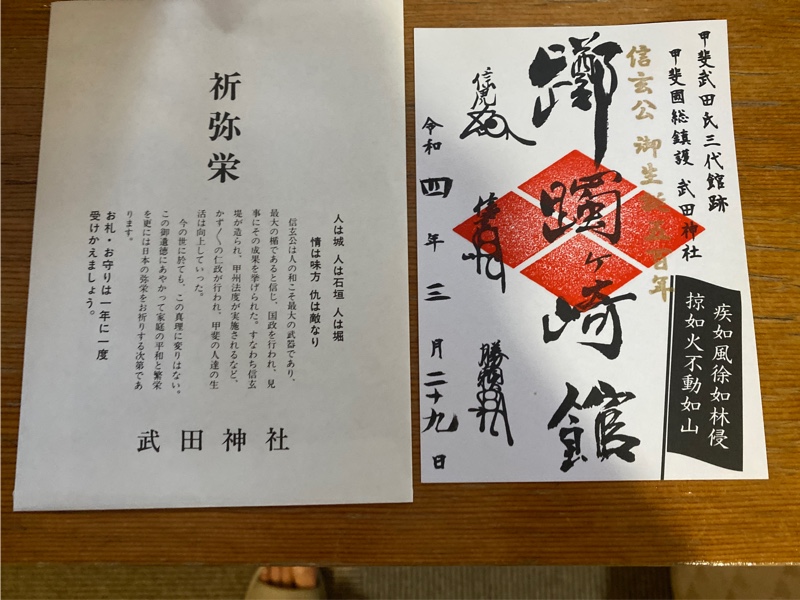 祈弥栄
人は城 人は石垣 人は堀
情は味方 仇は敵なり
信玄公は人の和こそ最大の武器であり、
最大の楯であると信じ、国政を行われ、見
事にその成果を挙げられた。すなわち信玄
堤が造られ、甲州法度が実施されるなど、
かず〳〵の仁政が行われ、甲斐の人達の生
活は向上していった。
今の世に於ても、この真理に変りはない。
この御遺徳にあやかって家庭の平和と繁栄
を更には日本の弥栄をお祈りする次第であ
ります。
お札・お守りは一年に一度
受けかえましょう。
武田神社
甲斐武田氏三代館跡
甲斐國総鎮護 武田神社
信玄公 御生誕五百年
躑躅ヶ崎館
信虎
信玄
勝頼
令和四年三月二十九日
疾如風徐如林侵
掠如火不動如山